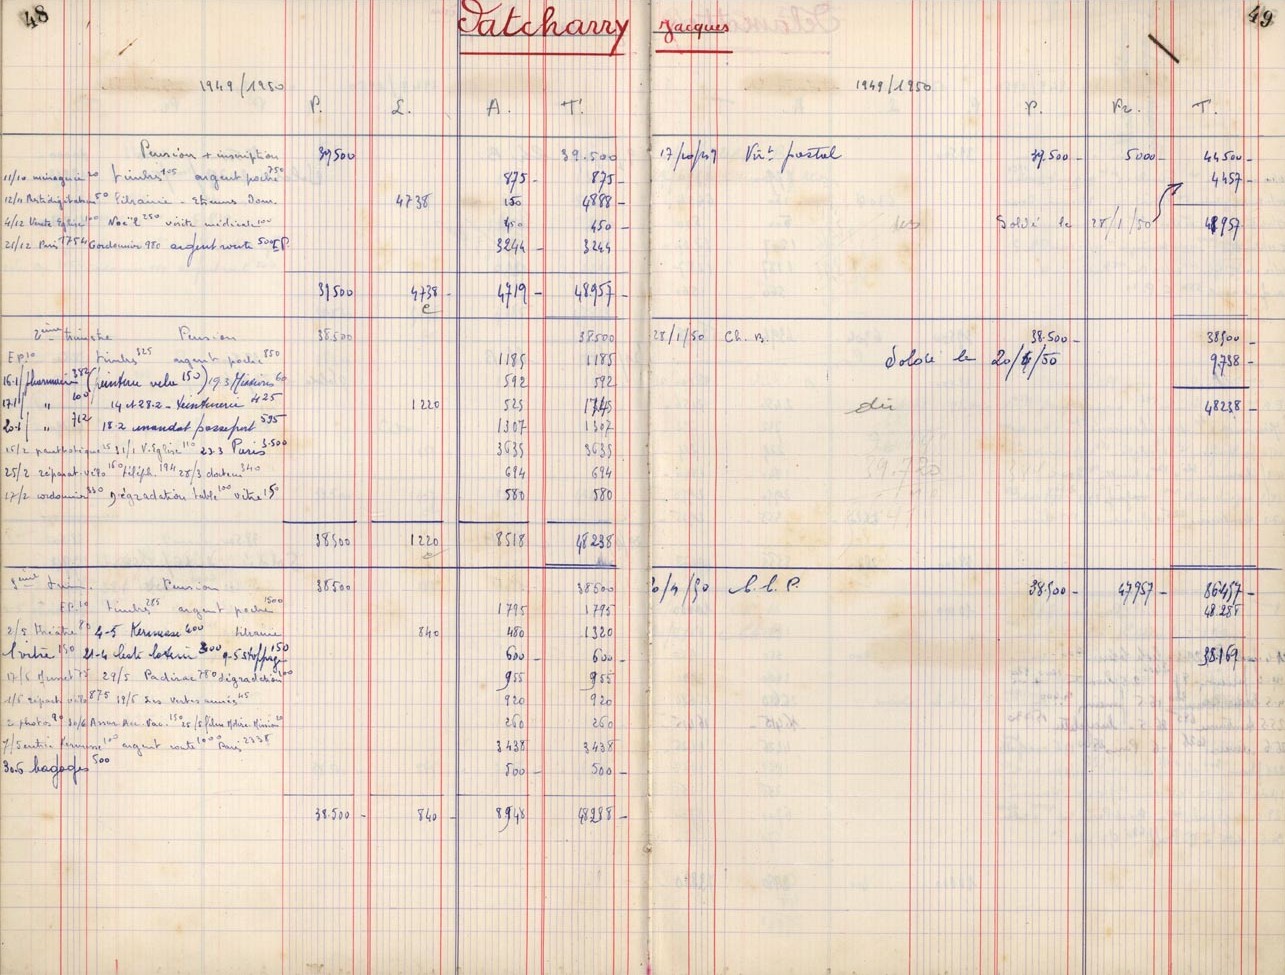 48
Jatcharry Jacques
49
1949/1950
P. L. A. T.
Pension + inscription 39500 39.500
11/10 ménagerie 20 timbres 105 argent poche 750 875 - 875 -
12/11 50 Librairie - Etrennes Dom. 4738 150 4888 -
4/12 Vente Eglise 100 Noël 250 visite médicale 100 450 450 -
21/12 Paris 1754 Cordonnier 980 argent route 500 E.P. 3244 - 3244
39500 4738 - 4719 - 48957 -
2ème trimestre Pension 38500 38500
E.P. 10 timbres 325 argent poche 850 1185 1185
16-1/ pharmacie 382 (peinture velo 150) 19.3 Missions 60 592 592
17-1/ " 100 14 et 28-2 - teinturerie 425 1220 525 1745
20-1/ " 712 18-2 mandat passeport 595 1307 1307
15 31/1 V. Eglise 110 23.3 Paris 3.500 3635 3635
25/2 réparat. vélo 160 téléph. 194 28/3 docteur 340 694 694
17/2 cordonnier 330 Dégradation table 100 vitre 150 580 580
38500 1220 8518 48238
3ème trim. Pension 38500 38500
E.P. 10 timbres 285 argent poche 1500 1795 1795
2/5 théâtre 80 4-5 Kermesse 400 librairie 840 480 1320
1 vitre 150 21-4 loterie 300 9-5 stoppage 150 600 - 600 -
17/6 175 29/5 Padirac 780 dégradation 955 955
réparat. vélo 875 19/5 45 920 920
2 photos 90 30/6 150 25/5 film Mission 20 260 260
7/5 entrée Kermesse 100 argent route 1000 Paris 2338 3438 3438
30.6 bagages 500 500 - 500 -
38.500 - 840 - 8948 48288 -
1949/1950
P. Fr. T.
17/10/49 Virt postal 39.500 - 5000 - 44500 -
4457 -
Soldé le 28/1/50 48957
28/1/50 Ch. B. 38.500 - 38500 -
Soldé le 20/4/50 9.738 -
dû 48238 -
20/4/50 C.C.P. 38.500 - 47957 - 86457 -
48.288
38169